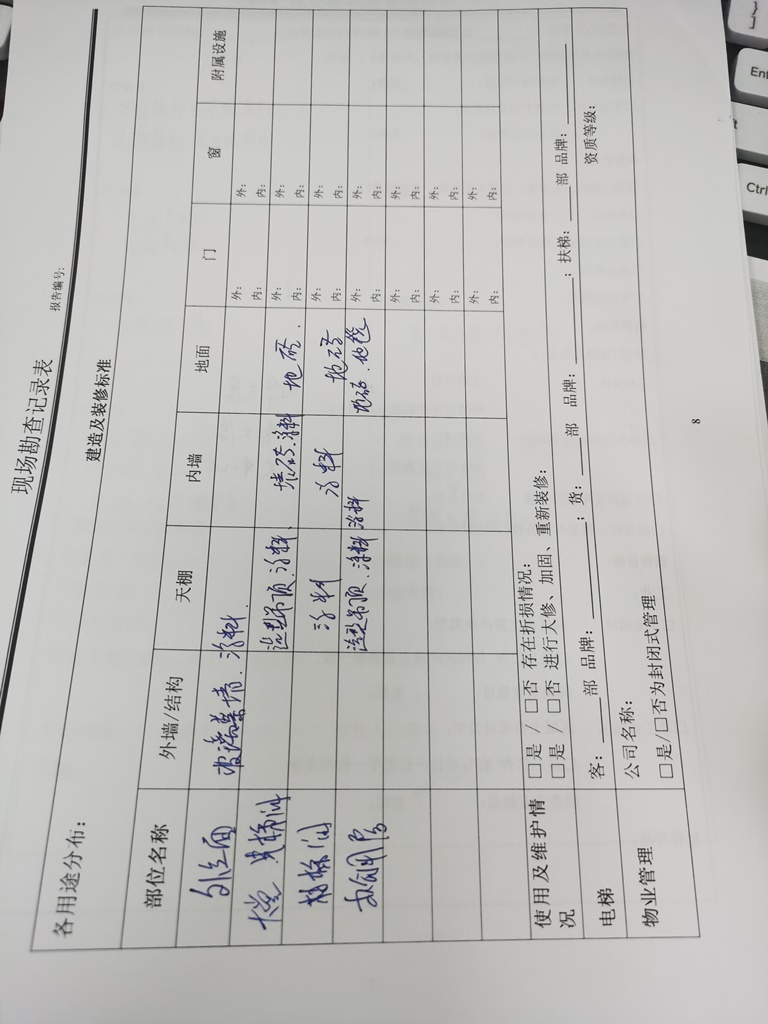 现场勘查记录表
报告编号:
建造及装修标准
各用途分布:
部位名称 外墙/结构 天棚 内墙 地面 门 窗 附属设施
外立面 玻璃幕墙、涂料. 外: 内: 外: 内:
大堂、电梯间 造型吊顶、涂料、 墙砖、涂料 地砖. 外: 内: 外: 内:
楼梯间 涂料 涂料 地砖 外: 内: 外: 内:
造型吊顶、涂料 涂料 地砖、地毯 外: 内: 外: 内:
外: 内: 外: 内:
外: 内: 外: 内:
外: 内: 外: 内:
使用及维护情况 □是 / □否 存在折损情况:
□是 / □否 进行大修、加固、重新装修:
电梯 客: 部 品牌: ; 货: 部 品牌: ; 扶梯: 部 品牌:
物业管理 公司名称: 资质等级:
□是/□否为封闭式管理
8
}
]
Ent
Ctrl